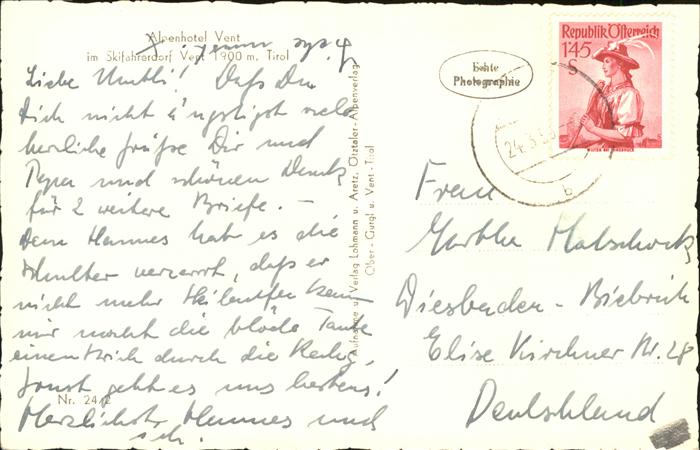 Alpenhotel Vent
im Skifahrerdorf Vent 1900 m. Tirol
Liebe Mutti! Daß Du
Dich nicht ängstigst viele
herzliche Grüße Dir und
Papa und schönen Dank
für 2 weitere Briefe. —
Dem Hannes hat es die
Schulter verzerrt, daß er
nicht mehr Skilaufen kann
mir macht die blöde Tante
einen Strich durch die Rechng,
sonst geht es uns bestens!
Herzlichst Hannes und
ich.
Nr. 2472
Aufnahme u. Verlag Lohmann u. Aretz, Ötztaler-Alpenverlag
Ober-Gurgl u. Vent-Tirol
Echte
Photographie
Republik Österreich
1.45
24.3.5
b
Frau
Martha
Wiesbaden - Biebrich
Elise Kirchner Nr. 28
Deutschland